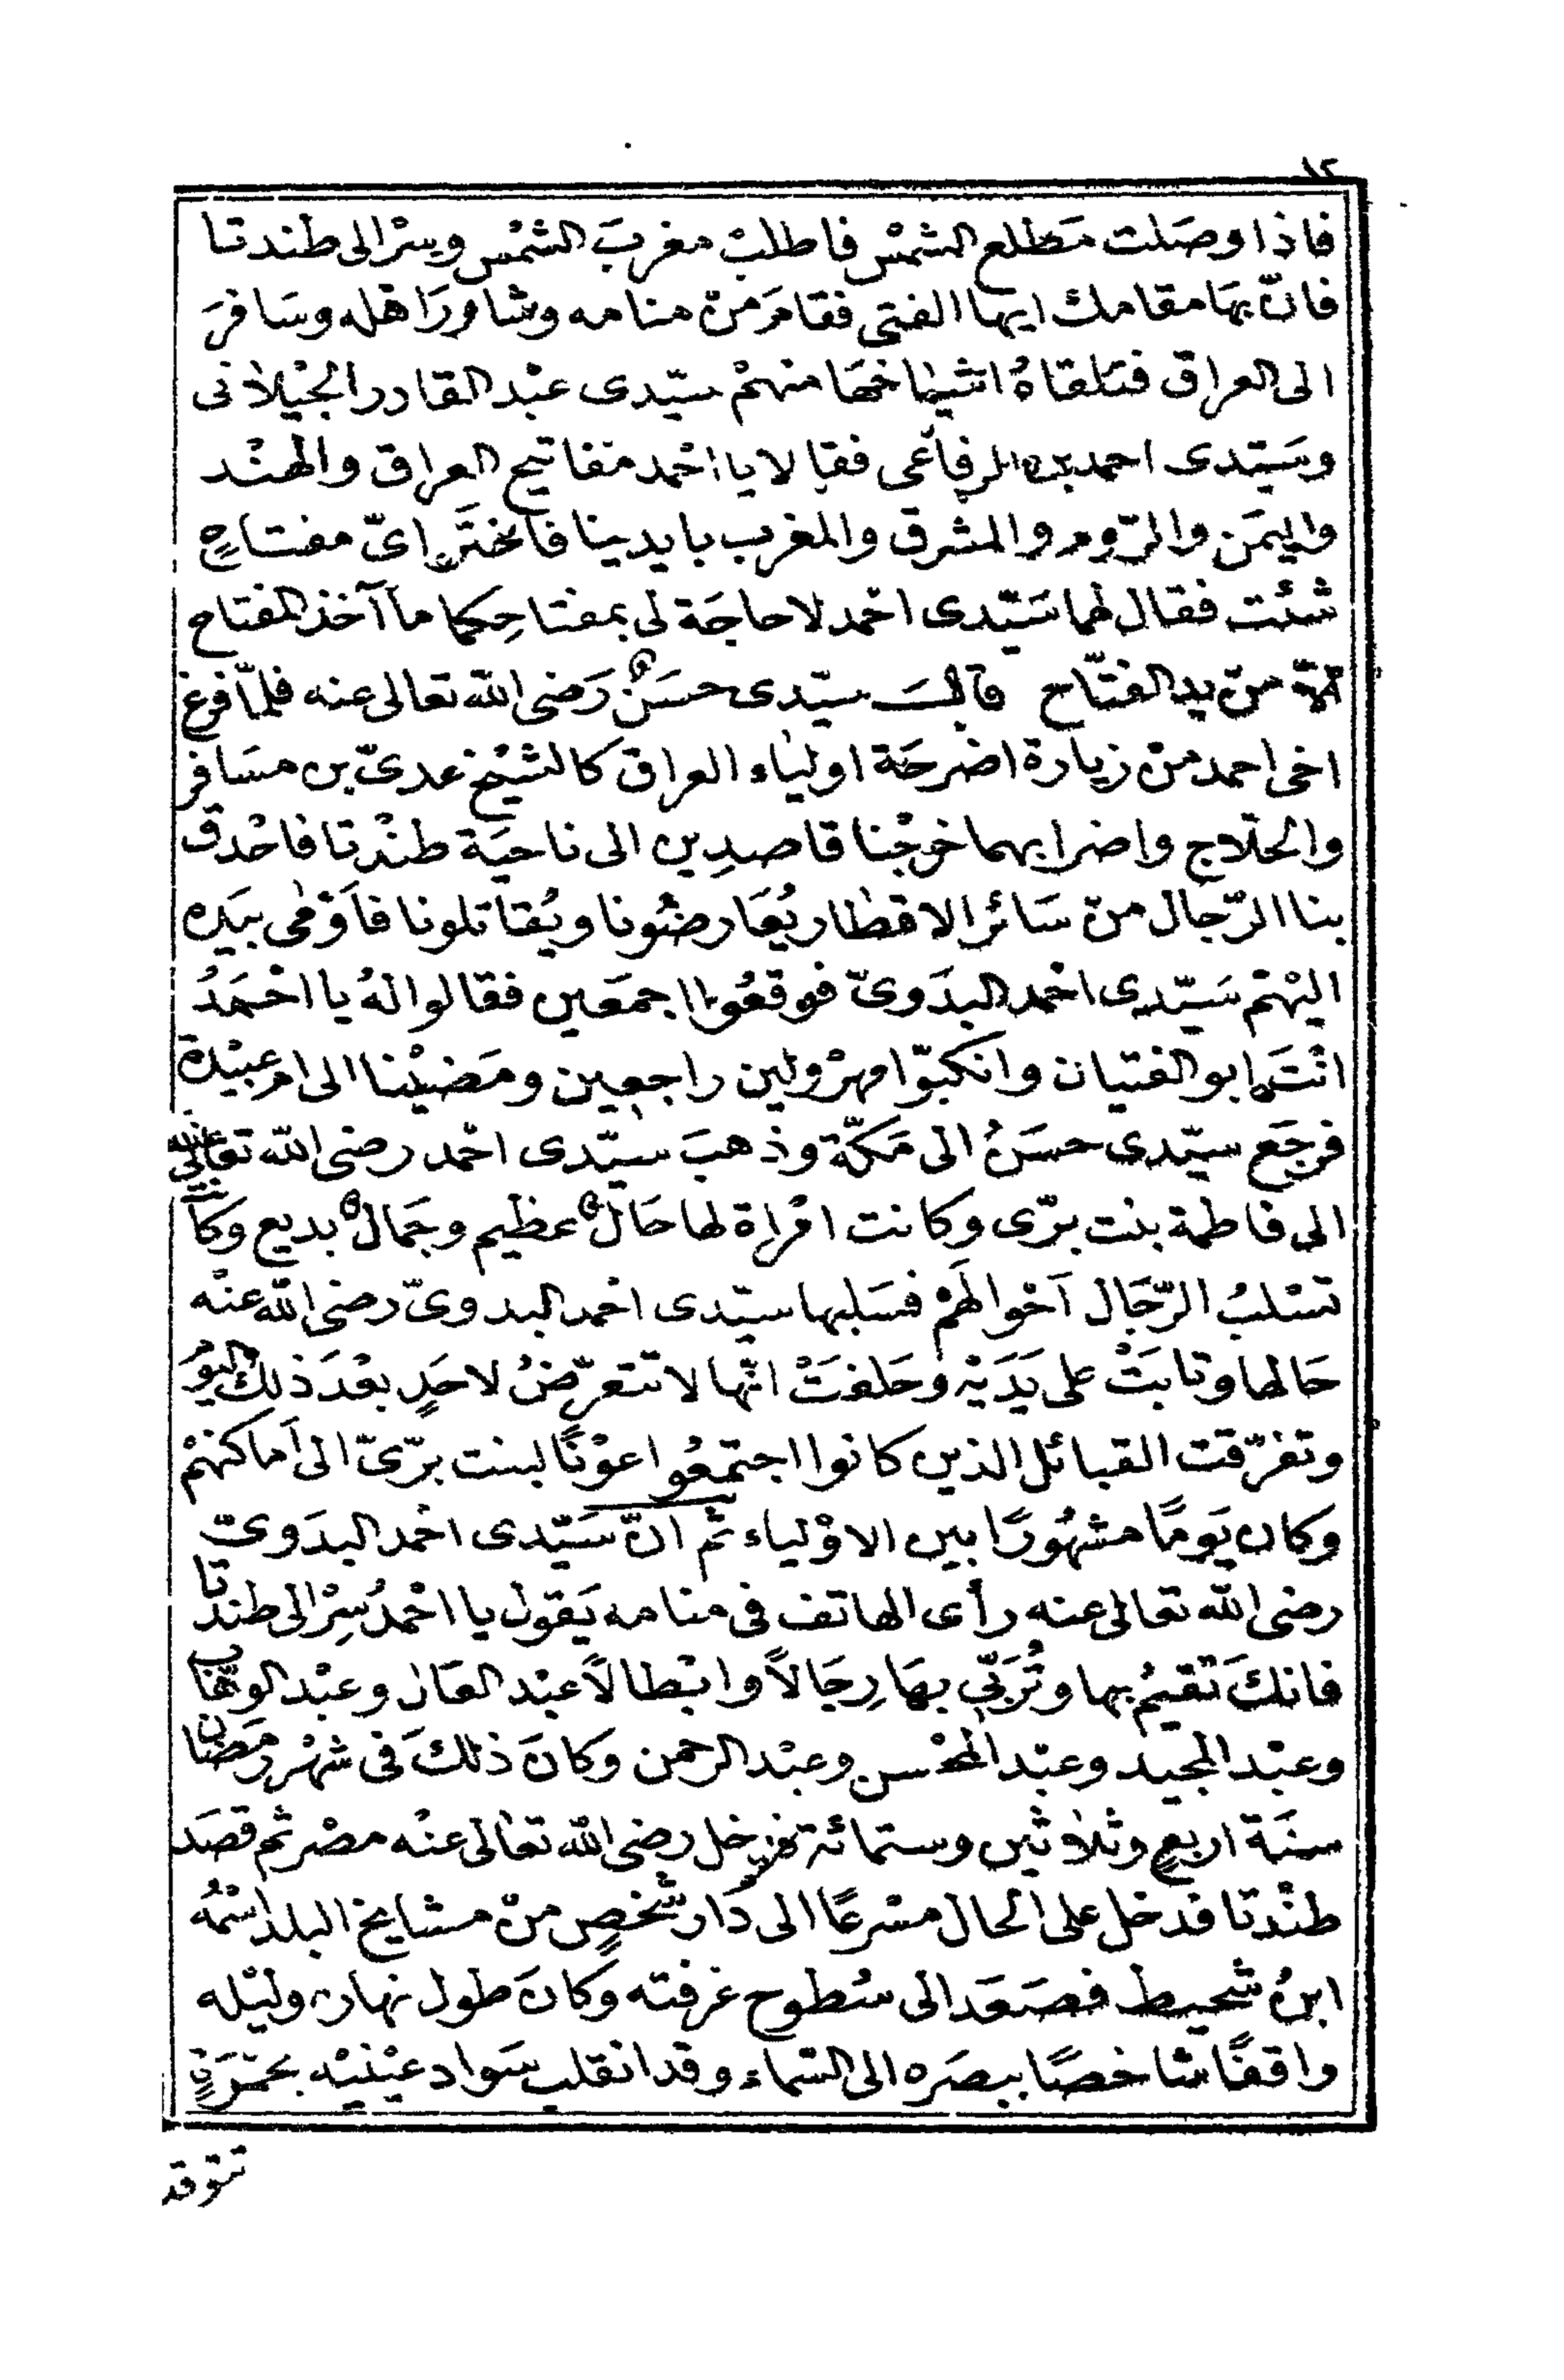 ١٢
فاذا وصَلت مَطلع الشمْس فاطلبْ مغربَ الشمْس وسِرْ الى طندتا
فانّ بهَا مقامك ايها الفتى فقامَ منْ منامه وشاورَ اهله وسَافرَ
الى العراق فتلقاهُ اشياخهَا منهمْ سيّدى عبْد القادر الجيْلانى
وسَيّدى احمد بن الرفاعى فقالا يا احْمد مفاتيح العراق والهنْد
واليمَن والرّوم والمشرق والمغرب بايدينا فاختَر اىّ مفتاحٍ
شئت فقال لهما سَيّدى احْمد لا حاجَة لى بمفتاحِكما ما آخذ المفتاح
الاّ منْ يد الفتّاح قالَ سيّدى حسَنٌ رَضى اللّه تعالى عنه فلمّا فرغ
اخى احمد منْ زيارة اضرحَة اولياء العراق كالشيْخ عدىّ بن مسَافر
والحلّاج واضرابهما خرجْنا قاصدِين الى ناحيَة طنْدتا فاحْدق
بنا الرّجال منْ سَائر الاقطار يُعَارضُونا ويُقاتلونا فاَوْمى بيَده
اليْهمْ سَيّدى احْمد البدَوىّ فوقعُوا اجمَعين فقالوا لهُ يا احْمَدُ
انْتَ ابو الفتيان وانكبّوا مهرْولين راجعين ومَضيْنا الى ام عبيْدة
فرجَع سيّدى حسَنُ الى مَكّة وذهبَ سيّدى احْمد رضى اللّه تعالى عنه
الى فاطمة بنت برّى وكانت امْراة لها حَالٌ عظيم وجَمالٌ بديع وَكا
تسْلبُ الرّجَال اَحْوالهَمْ فسَلبها سيّدى احْمد البدوىّ رضى اللّه عنْه
حَالها وتابَتْ على يَدَيْه وحَلفتْ انّها لا تتعرّضُ لاحَدٍ بعْدَ ذلك اليوْ
وتفرّقت القبائل الذين كانوا اجتمعُوا عوْنًا لبنت برّىّ الى اَماكنهمْ
وكان يَومًا مشهُورًا بين الاوْلياء ثم انّ سَيّدى احْمد البدَوىّ
رضى اللّه تعالى عنه رأى الهاتف فى منامه يَقول يا احْمدُ سِرْ الى طندتا
فانكَ تقيمُ بها وتُرَبّى بهَا رِجَالاً وابْطالاً عبْد العَال وعبْد الوهّاب
وعبْد المجيد وعبْد المحْسن وعبْد الرحمن وكانَ ذلكَ فى شهْر رمَضان
سنَة اربعٍ وثلاثين وستمائة فدخل رضى اللّه تعالى عنْه مصْر ثم قصَد
طنْدتا فدخل على الحال مسْرعًا الى دَار شخصٍ منْ مشايخ البلد اسْمُه
ابنُ شحيط فصَعَد الى سُطوح غرفته وكانَ طول نهاره وليْله
واقفًا شاخصًا ببصَره الى السّماء وقد انقلب سَواد عيْنيْه بحمْرَةٍ
تتوقد